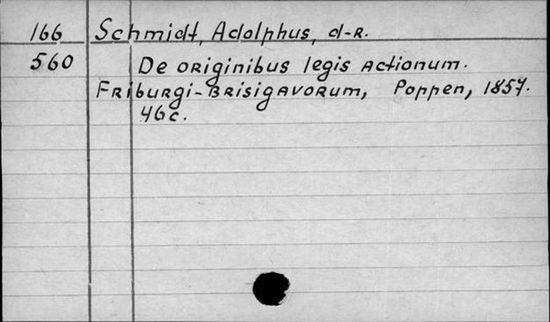 166 Schmidt, Adolphus, d-R.
560 De originibus legis actionum.
Friburgi-Brisigavorum, Poppen, 1857.
46c.